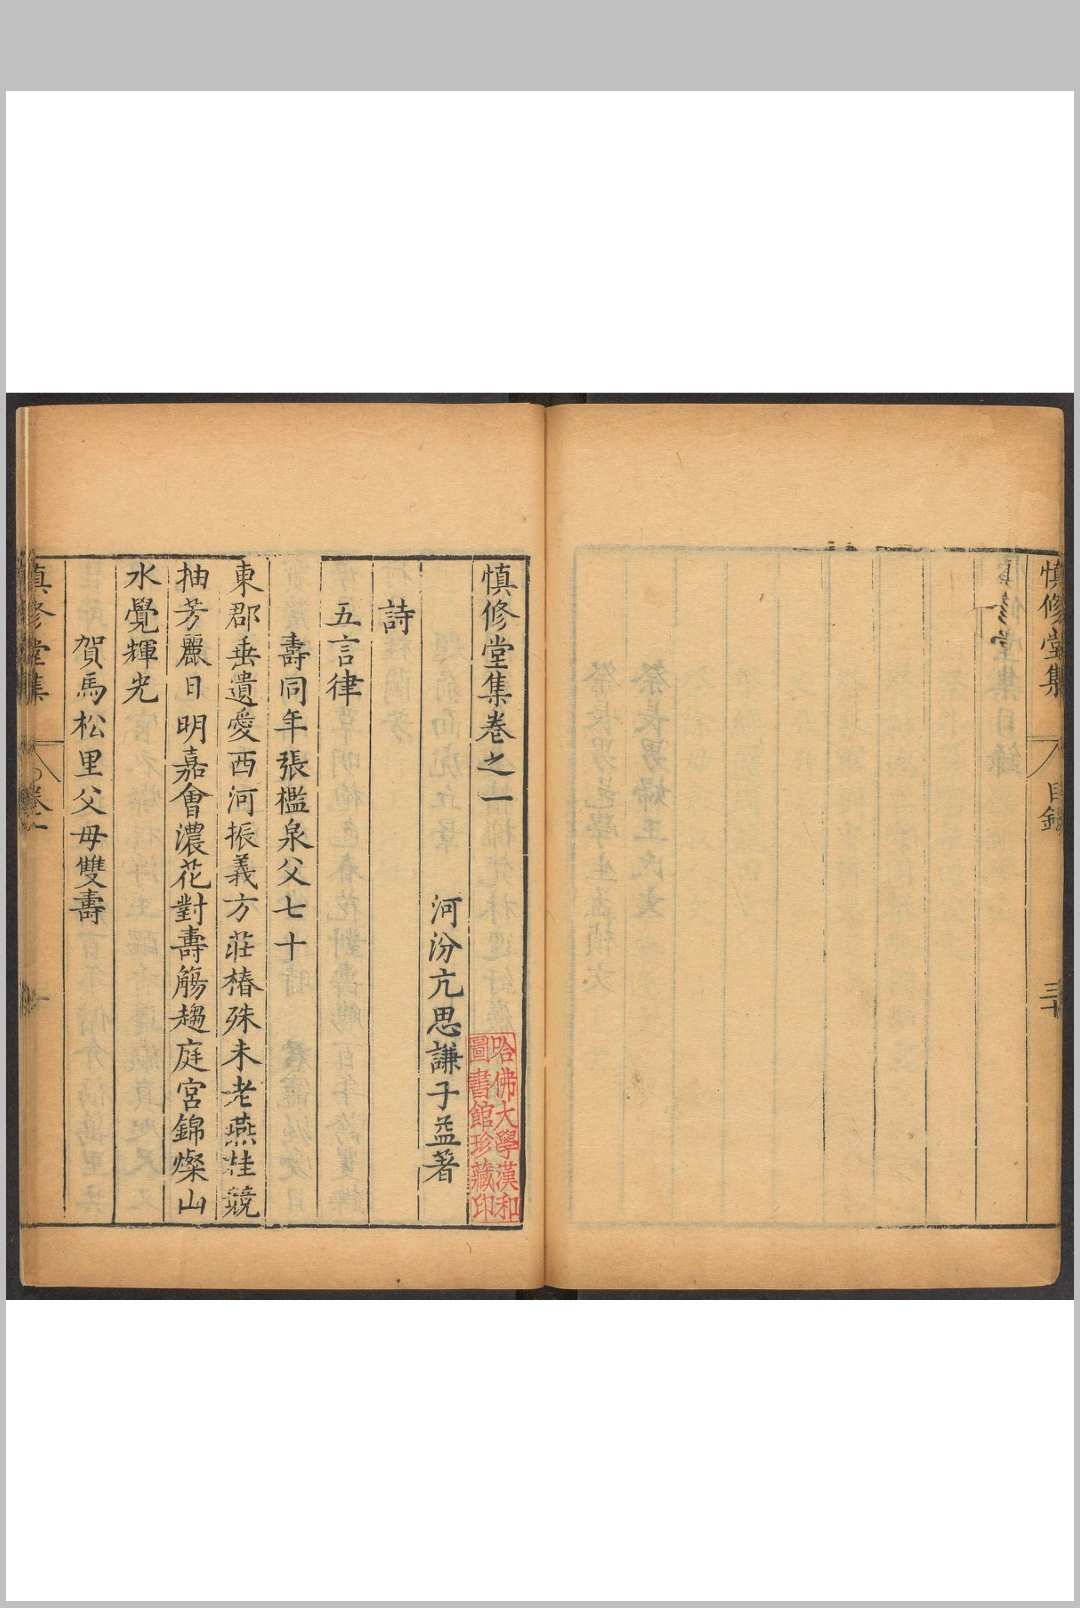 慎修堂集
目錄
三十
慎修堂
慎修堂集卷之一
河汾亢思謙子益著
詩
五言律
壽同年張檻泉父七十
東郡垂遺愛西河振義方莊椿殊未老燕桂競
抽芳麗日明嘉會濃花對壽觴趨庭宮錦燦山
水覺輝光
賀馬松里父母雙壽
慎修堂集
卷一
一
哈佛大學漢和
圖書館珍藏印